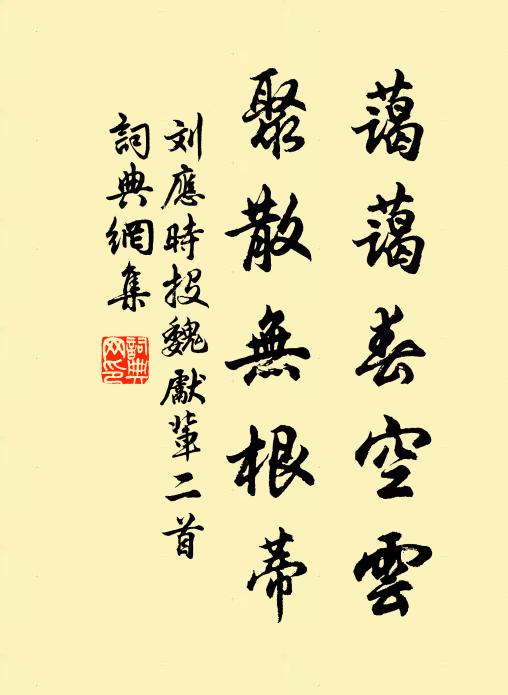 藹藹春空雲
聚散無根蒂
刘應時投魏獻輩二首
詞典網集
詞典網印